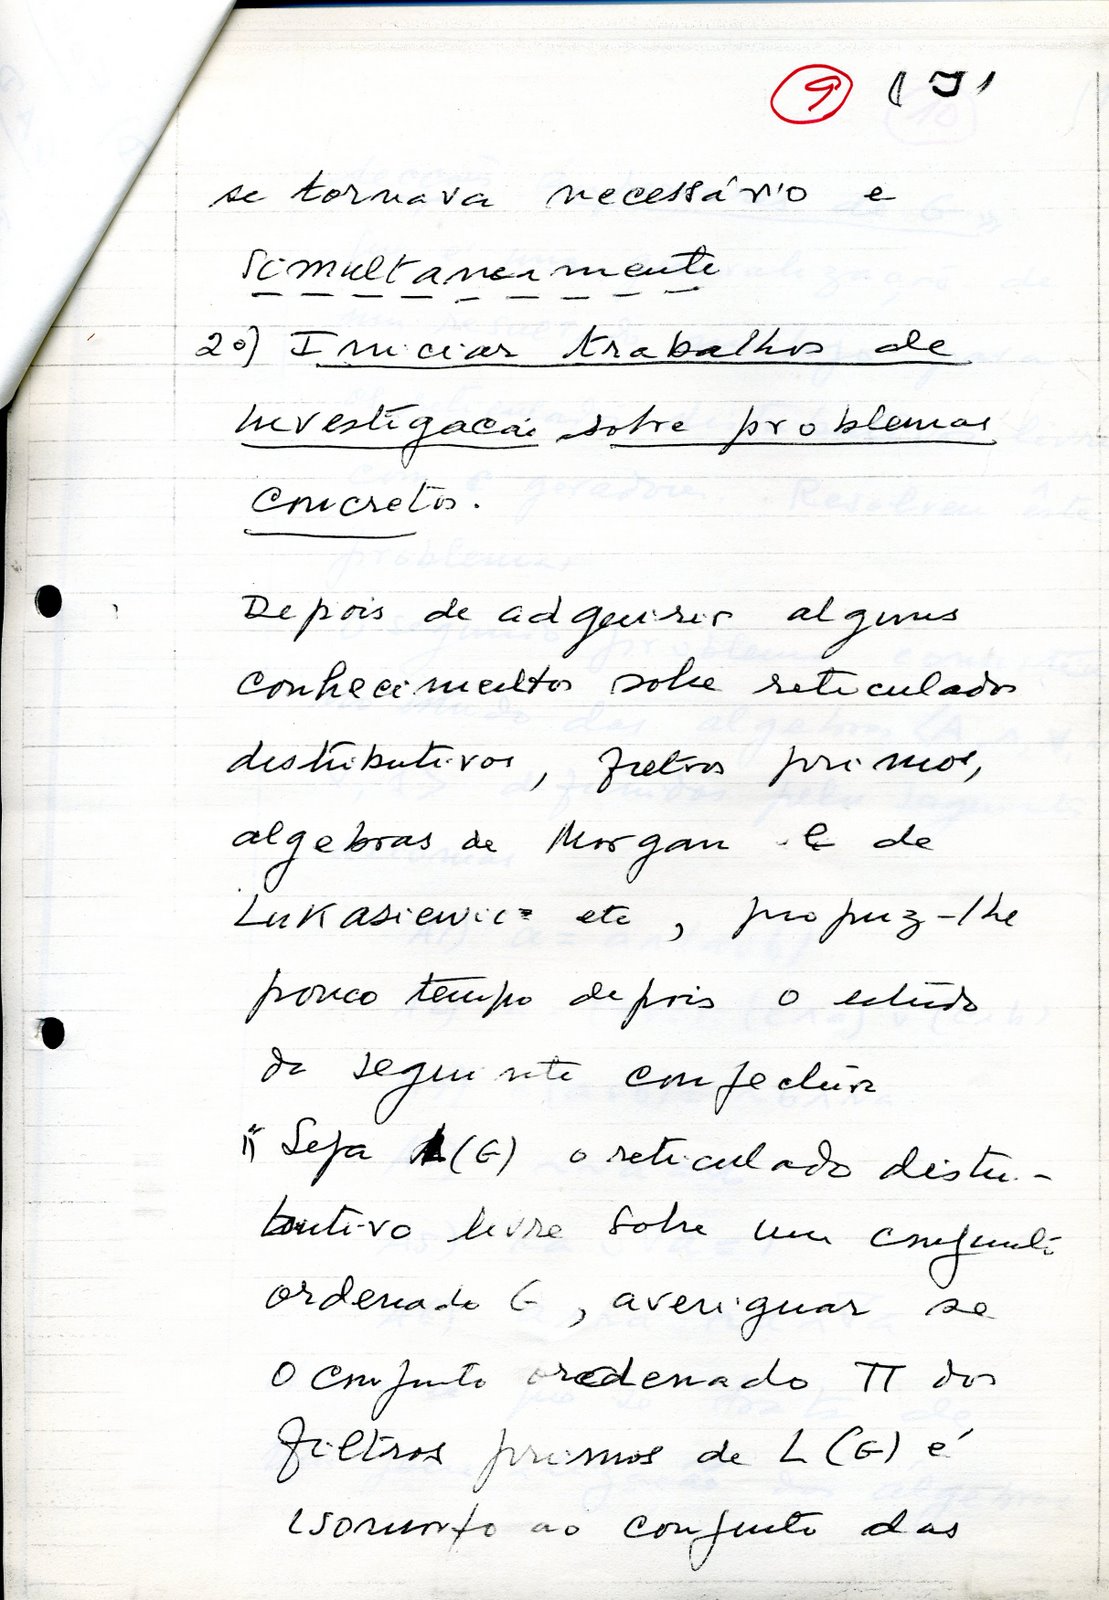 9 (9)
se tornava necessário e
simultaneamente
2º) Iniciar trabalhos de
investigação sobre problemas
concretos.
Depois de adquirir alguns
conhecimentos sobre reticulados
distributivos, filtros primos,
algebras de Morgan e de
Lukasiewicz etc, propuz-lhe
pouco tempo depois o estudo
da seguinte conjectura
"Seja L(G) o reticulado distri-
butivo livre sobre um conjunto
ordenado G, averiguar se
o conjunto ordenado Π dos
filtros primos de L(G) é
isomorfo ao conjunto das